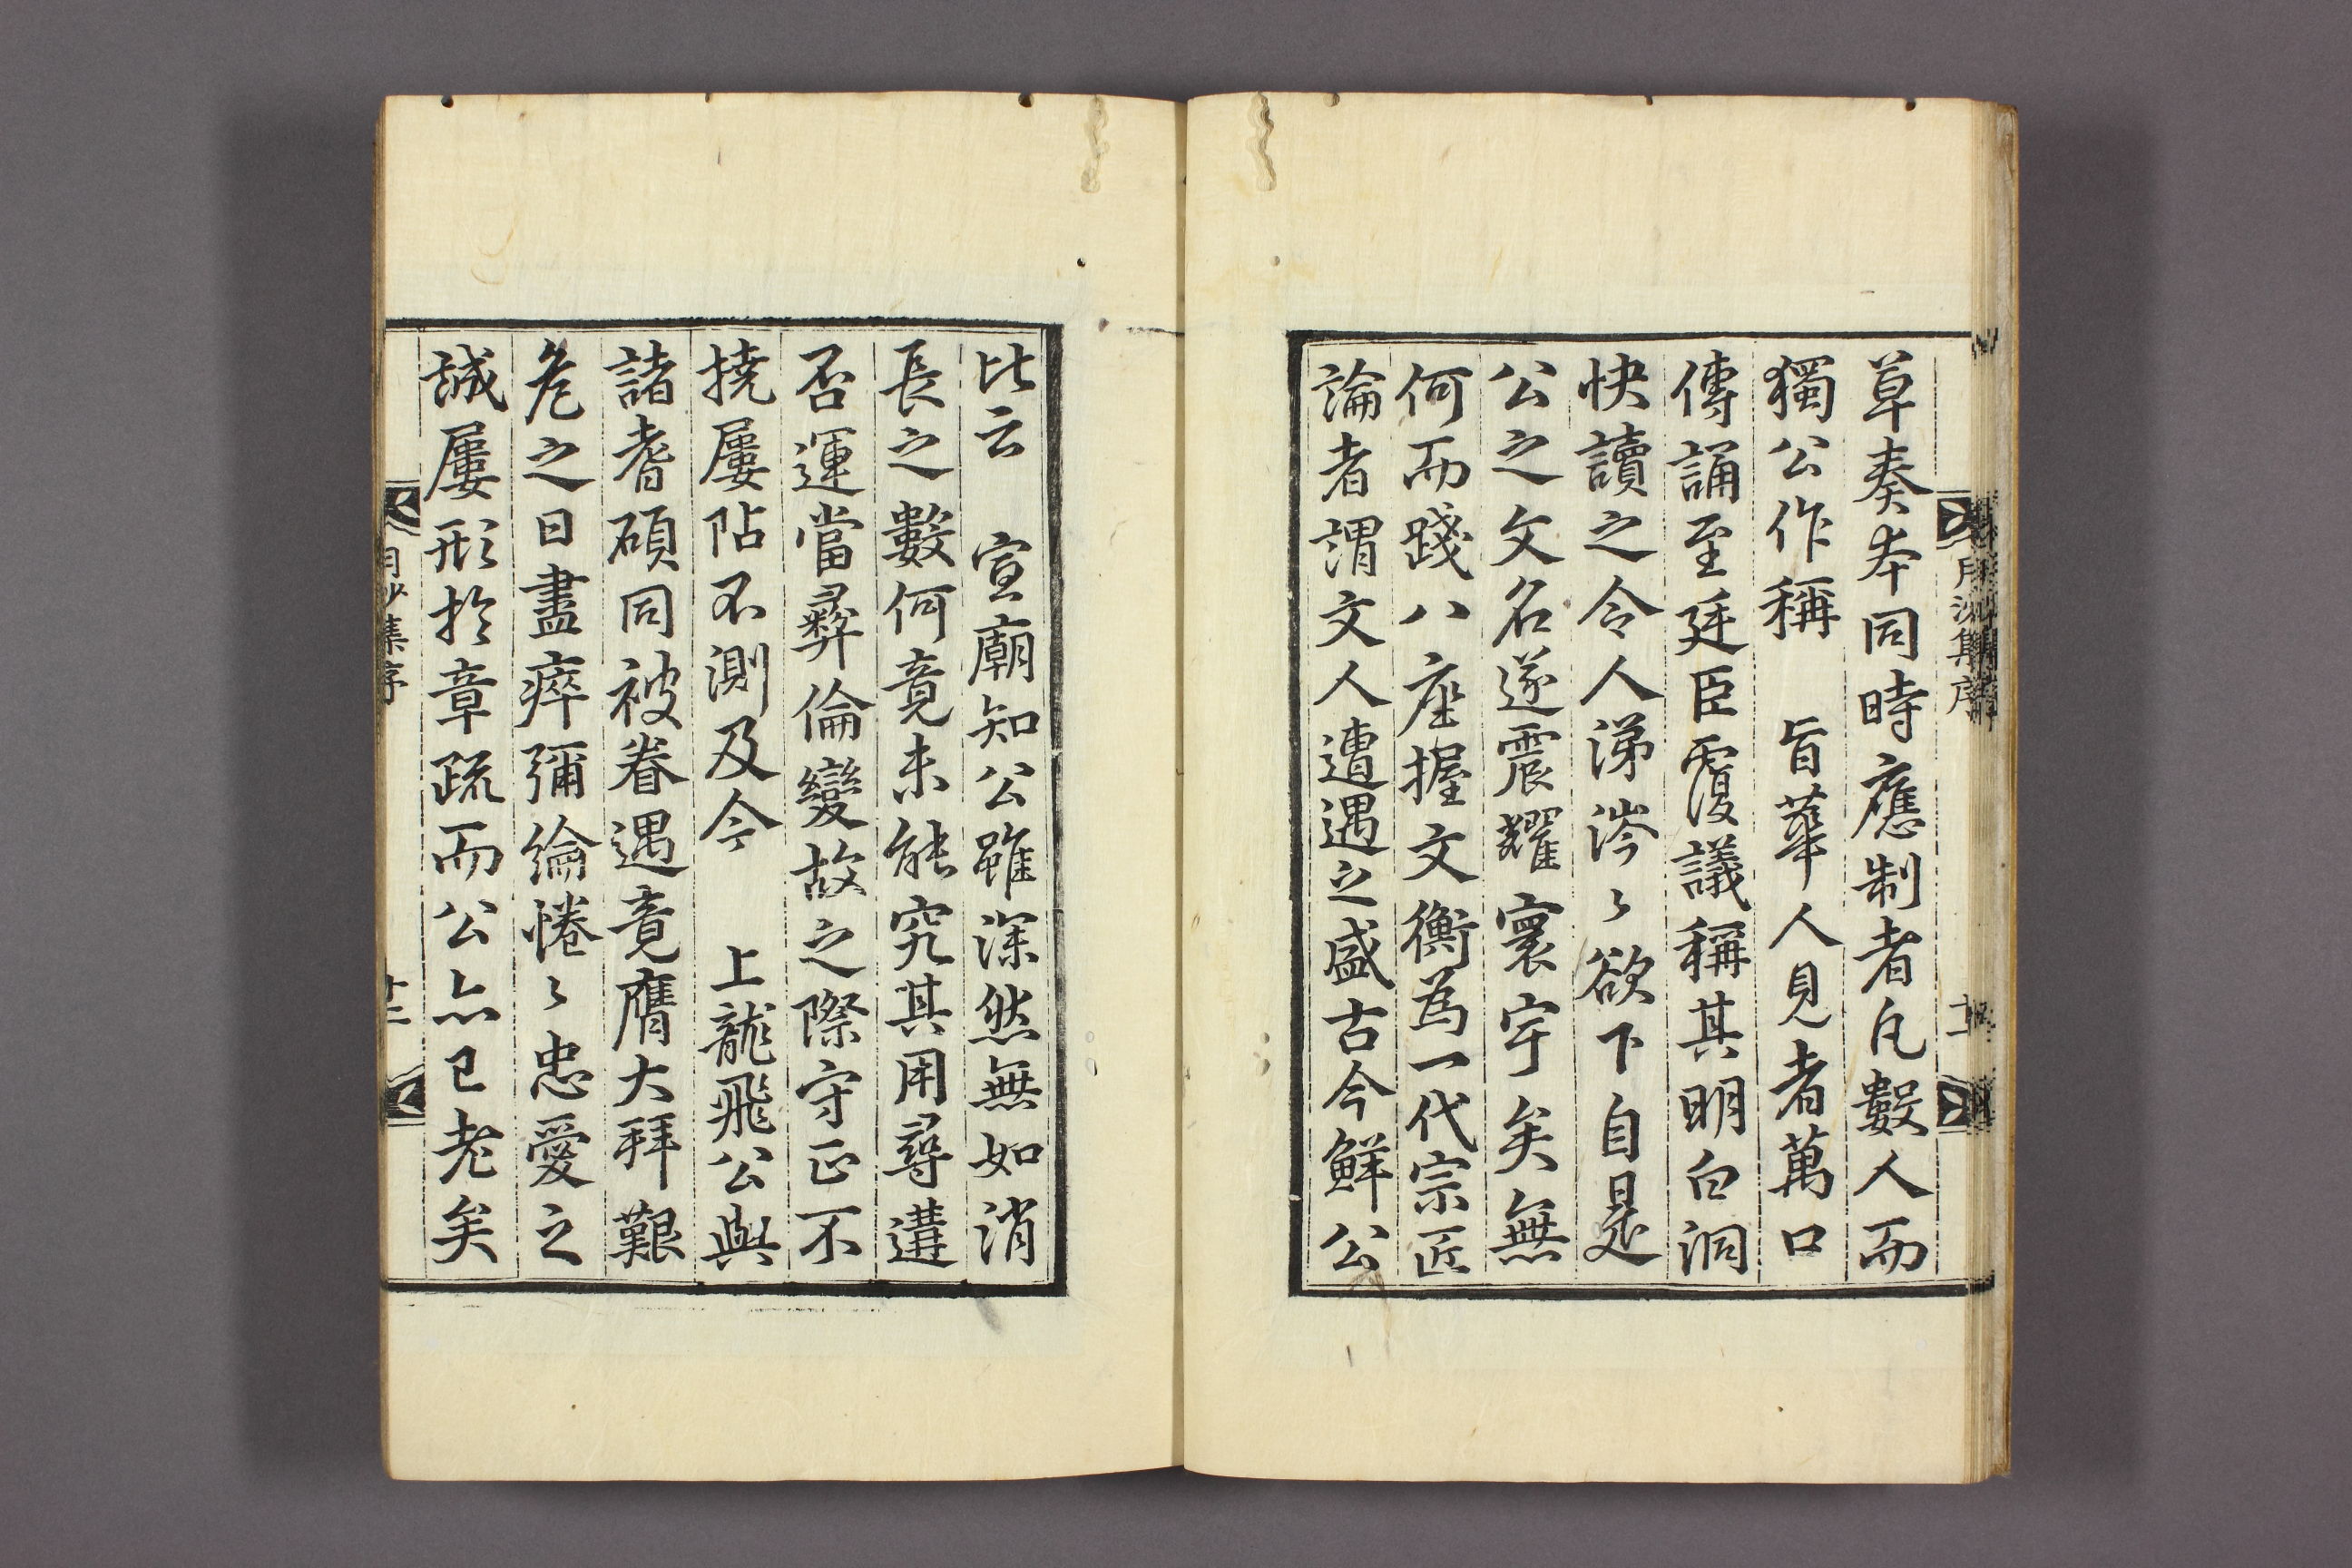 月沙集序
十一
草奏本同時應制者凡數人而
獨公作稱　旨華人見者萬口
傳誦至廷臣覆議稱其明白洞
快讀之令人涕涔〻欲下自是
公之文名遂震耀寰宇矣無
何而踐八座握文衡爲一代宗匠
論者謂文人遭遇之盛古今鮮公
比云　宣廟知公雖深然無如消
長之數何竟未能究其用尋遘
否運當彛倫變故之際守正不
撓屢阽不測及今　上龍飛公與
諸耆碩同被眷遇竟膺大拜艱
危之日盡瘁彌綸惓〻忠愛之
誠屢形於章疏而公亦已老矣
月沙集序
十二